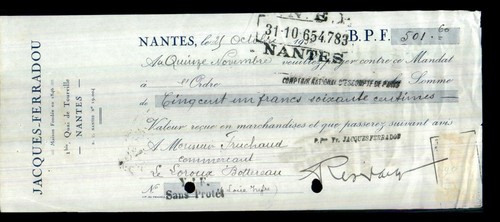 JACQUES-FERRADOU
Maison Fondée en
1bis, Quai de Tourville
— NANTES —
NANTES, le 25 Octobre
31-10 654.783
NANTES
B.P.F. 501.60
Au Quinze Novembre veuillez payer contre ce Mandat
à Ordre Somme
COMPTOIR NATIONAL D'ESCOMPTE DE PARIS
de Cinq cent un francs soixante centimes
Valeur reçue en marchandises et que passerez suivant avis
A Monsieur Fruchaud
Pr JACQUES FERRADOU
commercant
Le Loroux Bottereau
No Loire Infre
Sans Protêt